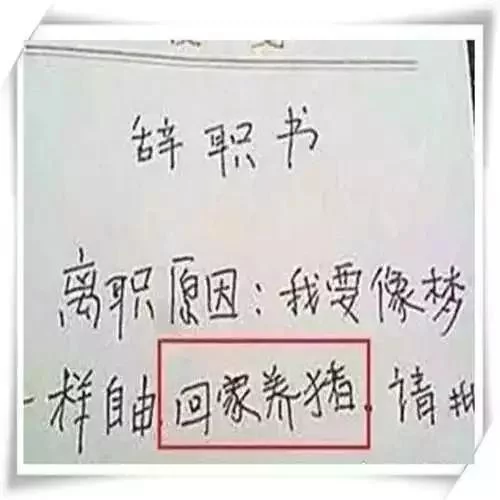 辞职书
离职原因:我要像梦
一样自由,回家养猪,请批